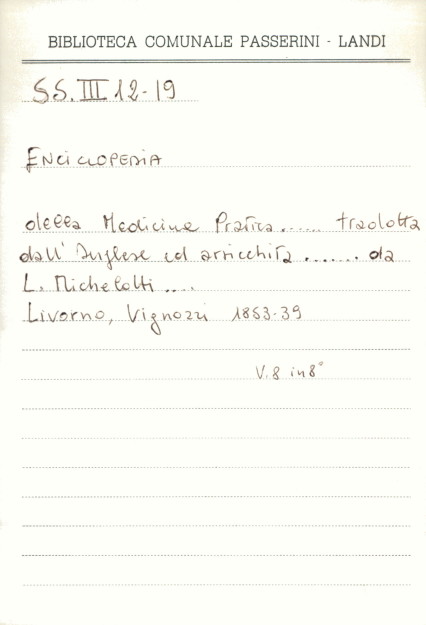 BIBLIOTECA COMUNALE PASSERINI - LANDI
SS. III 12-19
ENCICLOPEDIA
della Medicina Pratica...... tradotta
dall' Inglese ed arricchita ....... da
L. Michelotti ....
Livorno, Vignozzi 1853-39
V. 8 in 8°